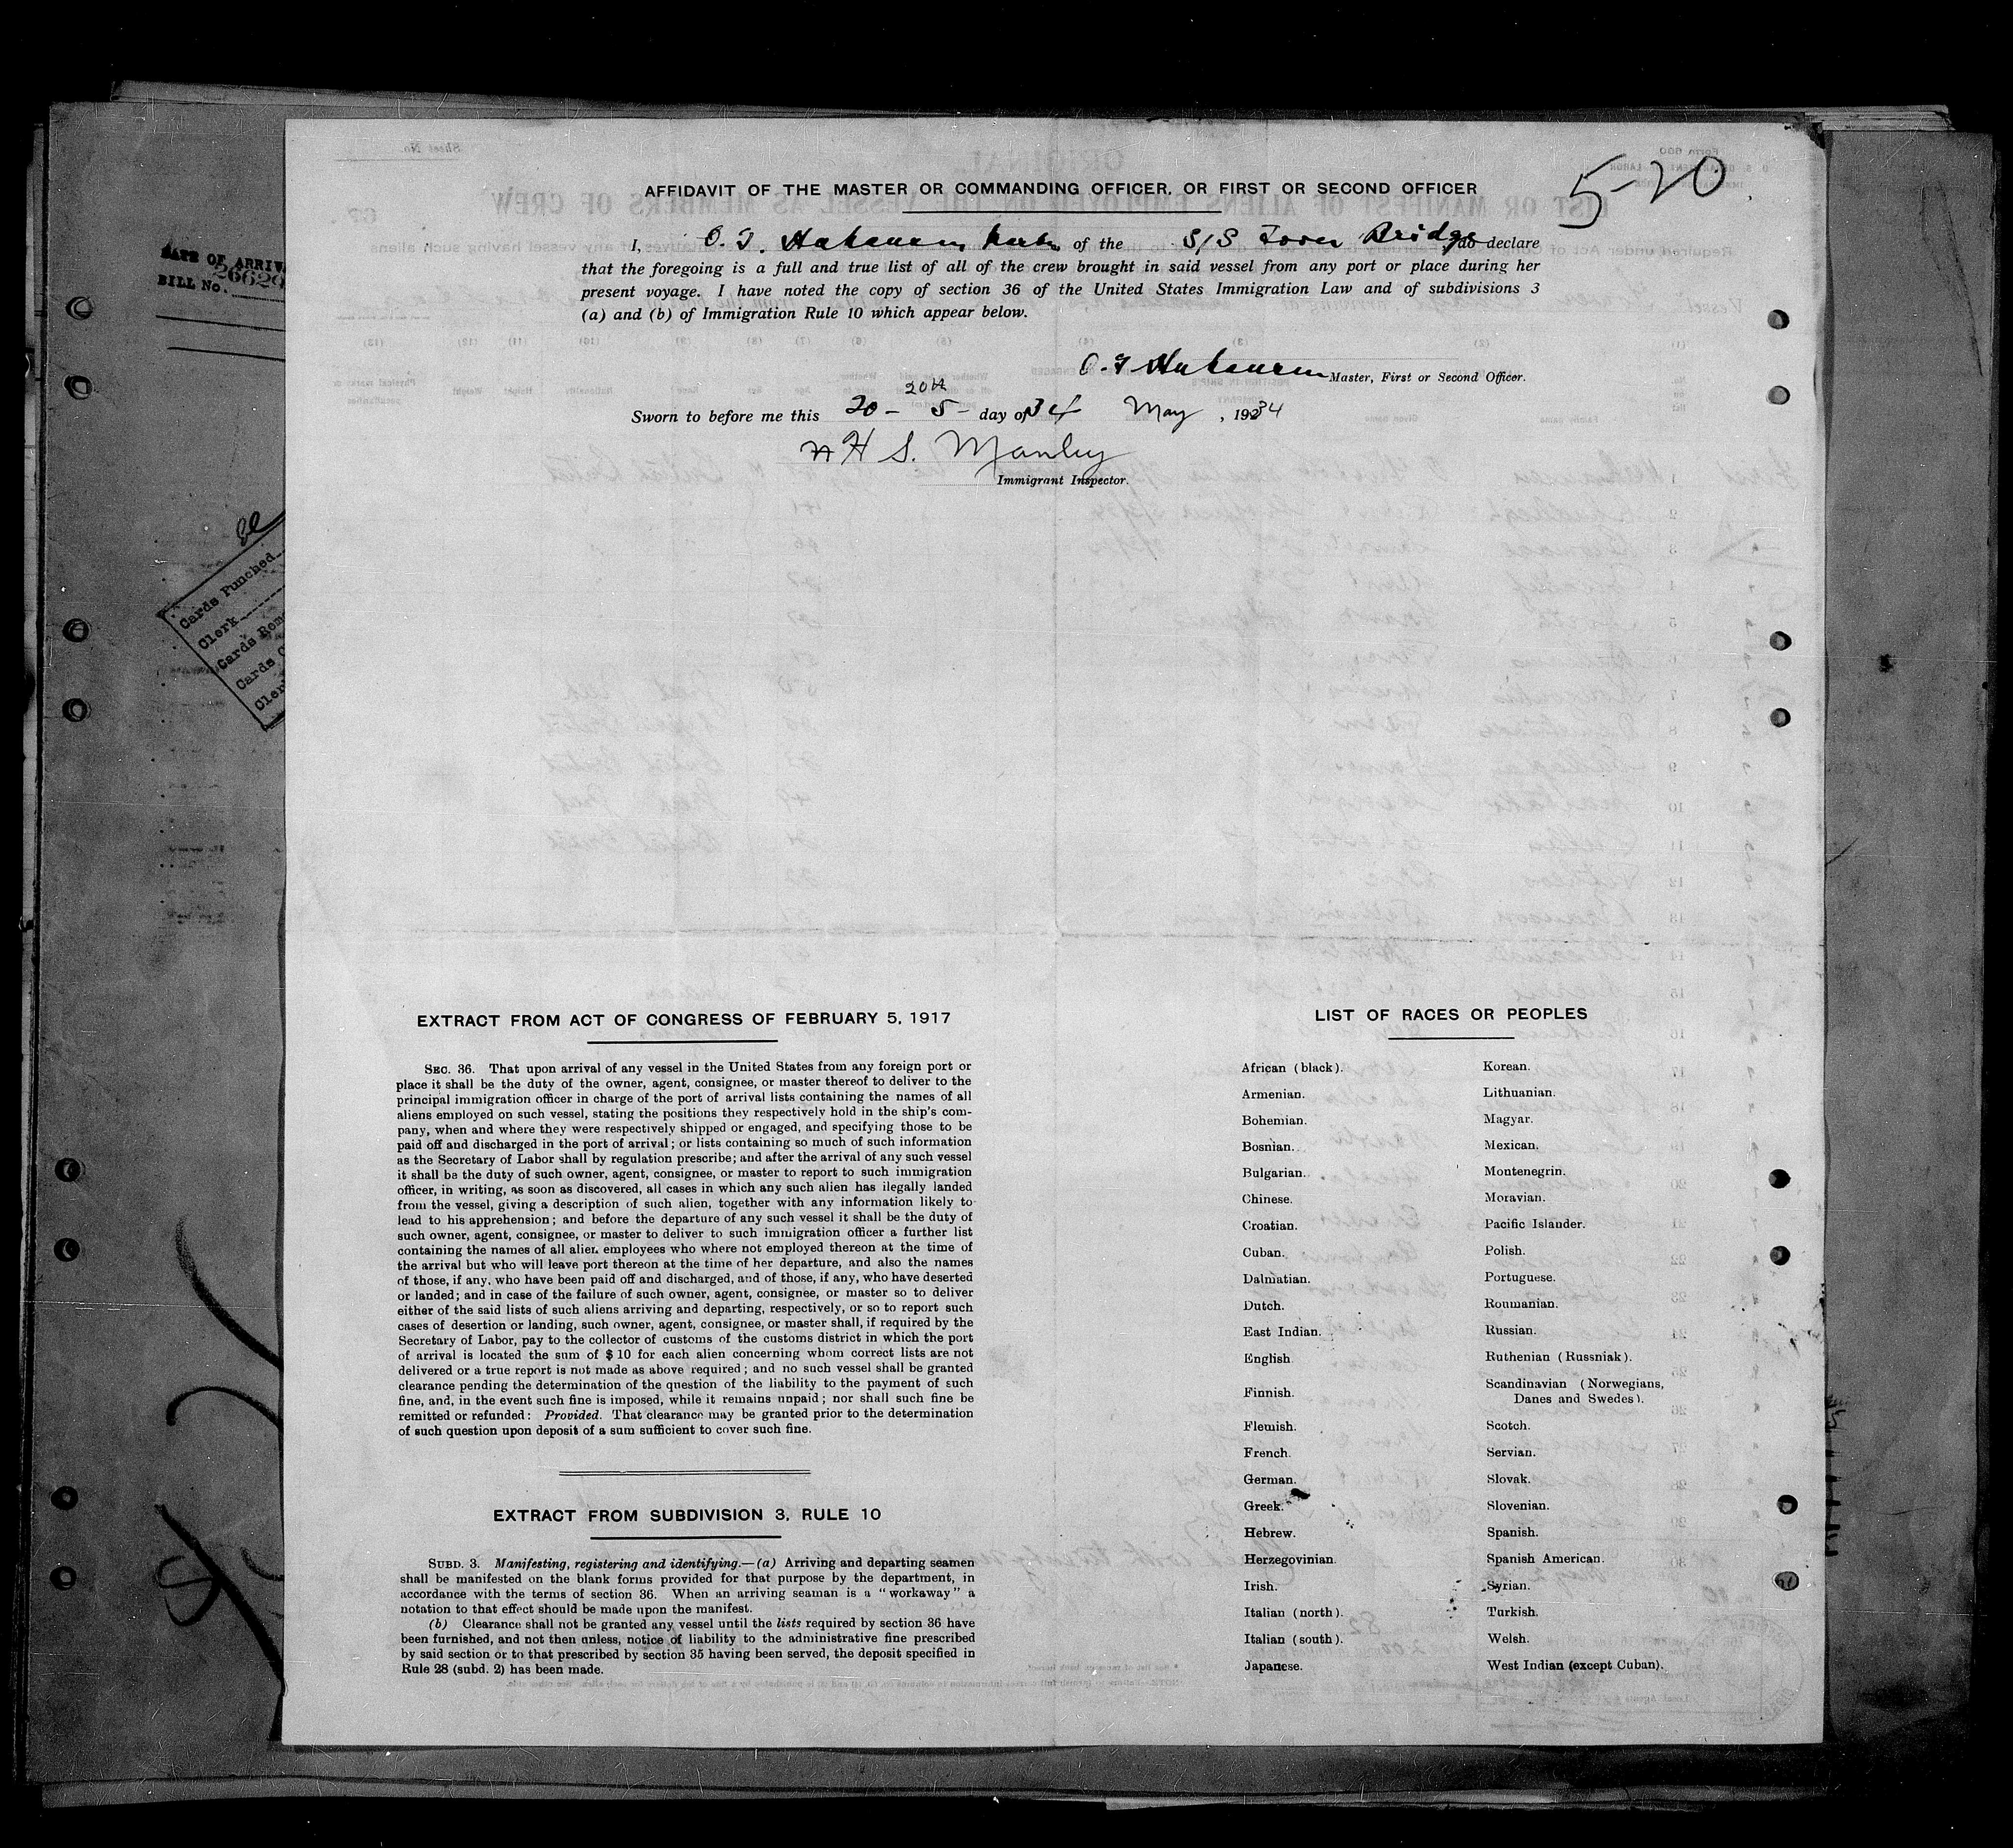 5-20
AFFIDAVIT OF THE MASTER OR COMMANDING OFFICER, OR FIRST OR SECOND OFFICER
I, O. T. of the S/S Bridge, do declare
that the foregoing is a full and true list of all of the crew brought in said vessel from any port or place during her
present voyage. I have noted the copy of section 36 of the United States Immigration Law and of subdivisions 3
(a) and (b) of Immigration Rule 10 which appear below.
Master, First or Second Officer.
20th
Sworn to before me this 20 - 5 - day of 34 May, 19234
H S. Manley
Immigrant Inspector.
DATE OF ARRIV
BILL No. 26629
Cards Punched
Clerk
Cards Rem
Cards C
Cler
EXTRACT FROM ACT OF CONGRESS OF FEBRUARY 5, 1917
SEC. 36. That upon arrival of any vessel in the United States from any foreign port or
place it shall be the duty of the owner, agent, consignee, or master thereof to deliver to the
principal immigration officer in charge of the port of arrival lists containing the names of all
aliens employed on such vessel, stating the positions they respectively hold in the ship's com-
pany, when and where they were respectively shipped or engaged, and specifying those to be
paid off and discharged in the port of arrival; or lists containing so much of such information
as the Secretary of Labor shall by regulation prescribe; and after the arrival of any such vessel
it shall be the duty of such owner, agent, consignee, or master to report to such immigration
officer, in writing, as soon as discovered, all cases in which any such alien has ilegally landed
from the vessel, giving a description of such alien, together with any information likely to
lead to his apprehension; and before the departure of any such vessel it shall be the duty of
such owner, agent, consignee, or master to deliver to such immigration officer a further list
containing the names of all alien employees who where not employed thereon at the time of
the arrival but who will leave port thereon at the time of her departure, and also the names
of those, if any, who have been paid off and discharged, and of those, if any, who have deserted
or landed; and in case of the failure of such owner, agent, consignee, or master so to deliver
either of the said lists of such aliens arriving and departing, respectively, or so to report such
cases of desertion or landing, such owner, agent, consignee, or master shall, if required by the
Secretary of Labor, pay to the collector of customs of the customs district in which the port
of arrival is located the sum of $10 for each alien concerning whom correct lists are not
delivered or a true report is not made as above required; and no such vessel shall be granted
clearance pending the determination of the question of the liability to the payment of such
fine, and, in the event such fine is imposed, while it remains unpaid; nor shall such fine be
remitted or refunded: Provided. That clearance may be granted prior to the determination
of such question upon deposit of a sum sufficient to cover such fine.
EXTRACT FROM SUBDIVISION 3, RULE 10
SUBD. 3. Manifesting, registering and identifying.—(a) Arriving and departing seamen
shall be manifested on the blank forms provided for that purpose by the department, in
accordance with the terms of section 36. When an arriving seaman is a "workaway" a
notation to that effect should be made upon the manifest.
(b) Clearance shall not be granted any vessel until the lists required by section 36 have
been furnished, and not then unless, notice of liability to the administrative fine prescribed
by said section or to that prescribed by section 35 having been served, the deposit specified in
Rule 28 (subd. 2) has been made.
LIST OF RACES OR PEOPLES
African (black).
Armenian.
Bohemian.
Bosnian.
Bulgarian.
Chinese.
Croatian.
Cuban.
Dalmatian.
Dutch.
East Indian.
English
Finnish.
Flemish.
French.
German.
Greek.
Hebrew.
Herzegovinian.
Irish.
Italian (north).
Italian (south).
Japanese.
Korean.
Lithuanian.
Magyar.
Mexican.
Montenegrin.
Moravian.
Pacific Islander.
Polish.
Portuguese.
Roumanian.
Russian.
Ruthenian (Russniak).
Scandinavian (Norwegians,
Danes and Swedes).
Scotch.
Servian.
Slovak.
Slovenian.
Spanish.
Spanish American.
Syrian.
Turkish.
Welsh.
West Indian (except Cuban).